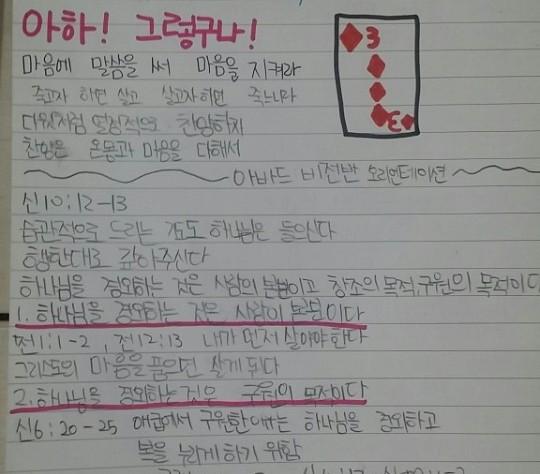 아하! 그렇구나!
3
마음에 말씀을 써 마음을 지켜라
죽고자 하면 살고 살고자하면 죽느니라
다윗처럼 열정적으로 찬양하자
찬양은 온몸과 마음을 다해서
3
아바드 비전반 오리엔테이션
신10:12-13
습관적으로 드리는 기도도 하나님은 들으신다
행한대로 갚아주신다
하나님을 경외하는 것은 사람의 본분이고 창조의 목적, 구원의 목적이다
1. 하나님을 경외하는 것은 사람의 본분이다
전1:1-2, 전12:13 내가 먼저 살아야한다
그리스도의 마음을 품으면 살게 된다
2. 하나님을 경외하는 것은 구원의 목적이다
신6:20-25 애급에서 구원한 이유는 하나님을 경외하고
복을 누리게하기 위함